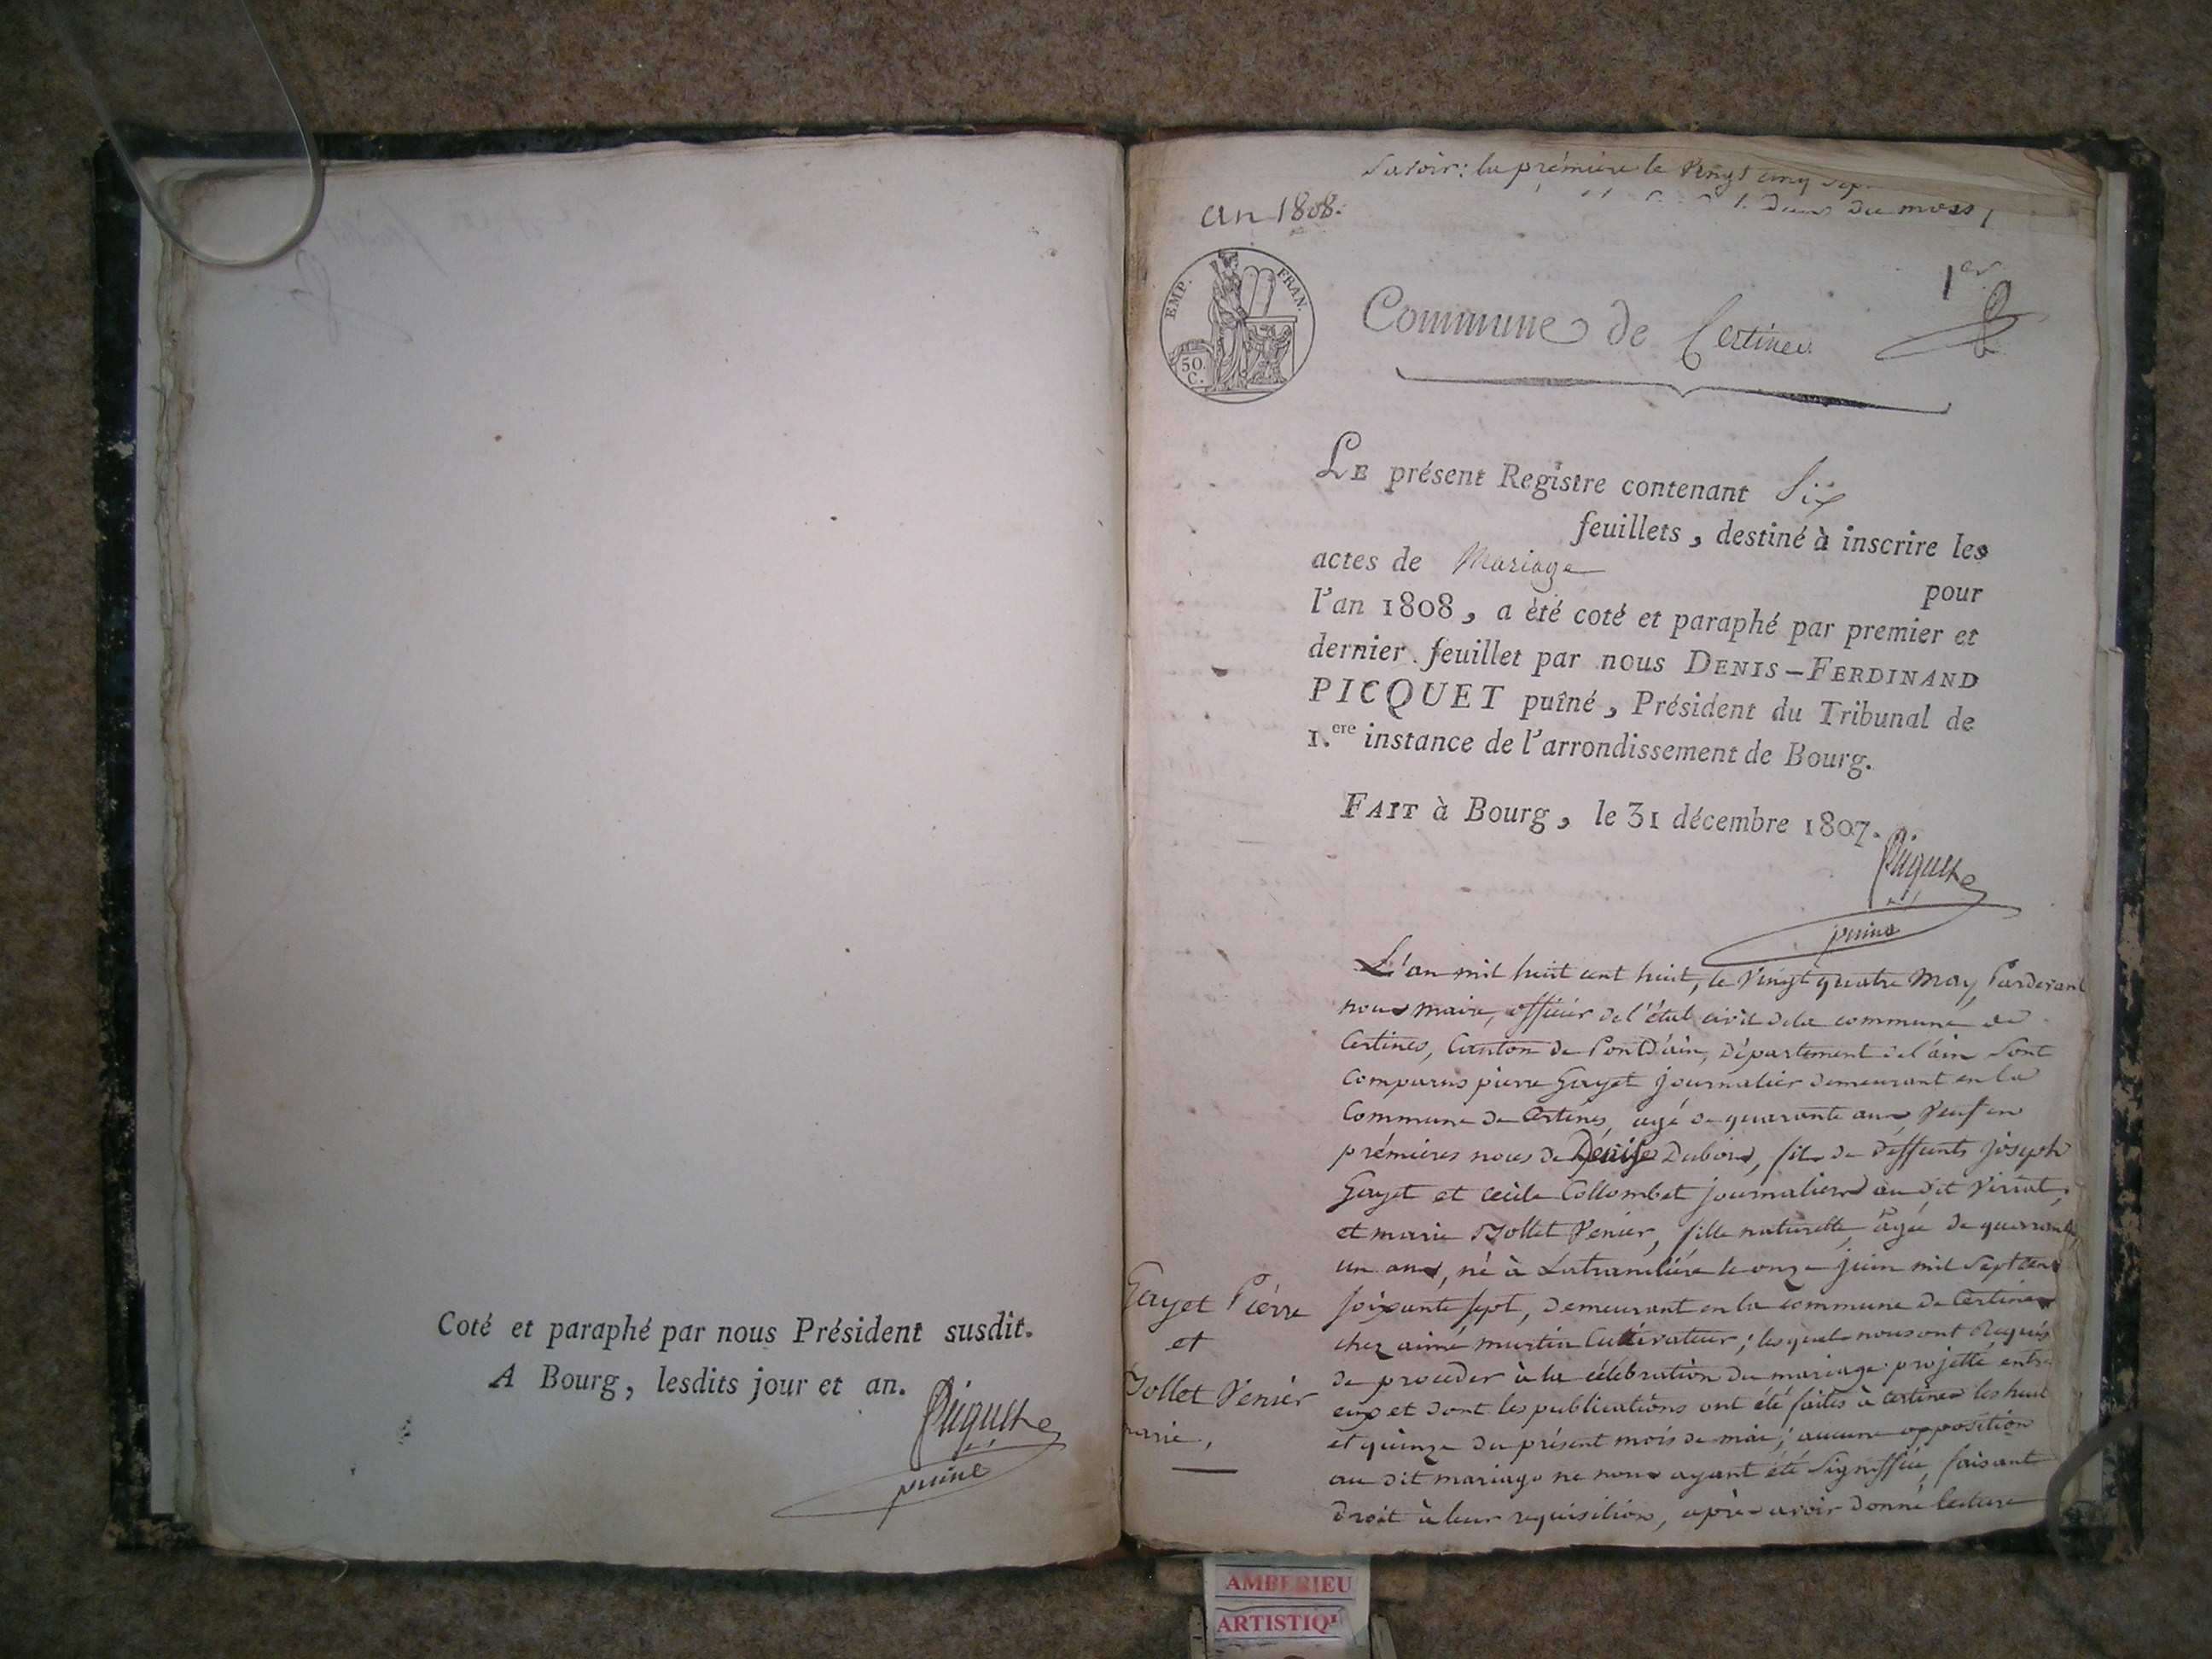 Coté et paraphé par nous Président susdit.
A Bourg, lesdits jour et an.
Picquet
puiné
Savoir: la prémiere le Vingt cinq
du mois,
an 1808.
EMP. FRAN.
50.
C.
1er
Commune de Certines
LE présent Registre contenant Six
feuillets, destiné à inscrire les
actes de Mariage
pour
l'an 1808, a été coté et paraphé par premier et
dernier feuillet par nous DENIS-FERDINAND
PICQUET puîné, Président du Tribunal de
1.ere instance de l'arrondissement de Bourg.
FAIT à Bourg, le 31 décembre 1807.
Picquet
puiné
Gayet Piérre
et
Vénier
marie,
L'an mil huit cent huit, le Vingt quatre May, Pardevant
nous maire, officier de l'état civil de la commune de
Certines, Canton de Pont D'ain, Département de l'ain Sont
Comparus pierre Gayet journalier demeurant en la
Commune de Certines, agé de quarante ans Veuf en
prémieres noces de Dénise Dubois, fils de deffunts joseph
Gayet et cécile Collombet journaliers au dit Viriat,
et marie Vénier, fille naturelle, agée de quarante
un ans, né à Latranclière le onze juin mil Sept cent
soixante sept, demeurant en la commune de Certines
chez aimé martin Cultivateur; lesquels nous ont Réquis
de proceder à la célébration du mariage projetté entre
eux et dont les publications ont été faites à Certines les huit
et quinze du présent mois de mai; aucune opposition
au dit mariage ne nous ayant été Signiffiée, faisant
droit à leur requisition, après avoir donné lecture
AMBERIEU
ARTISTIQ